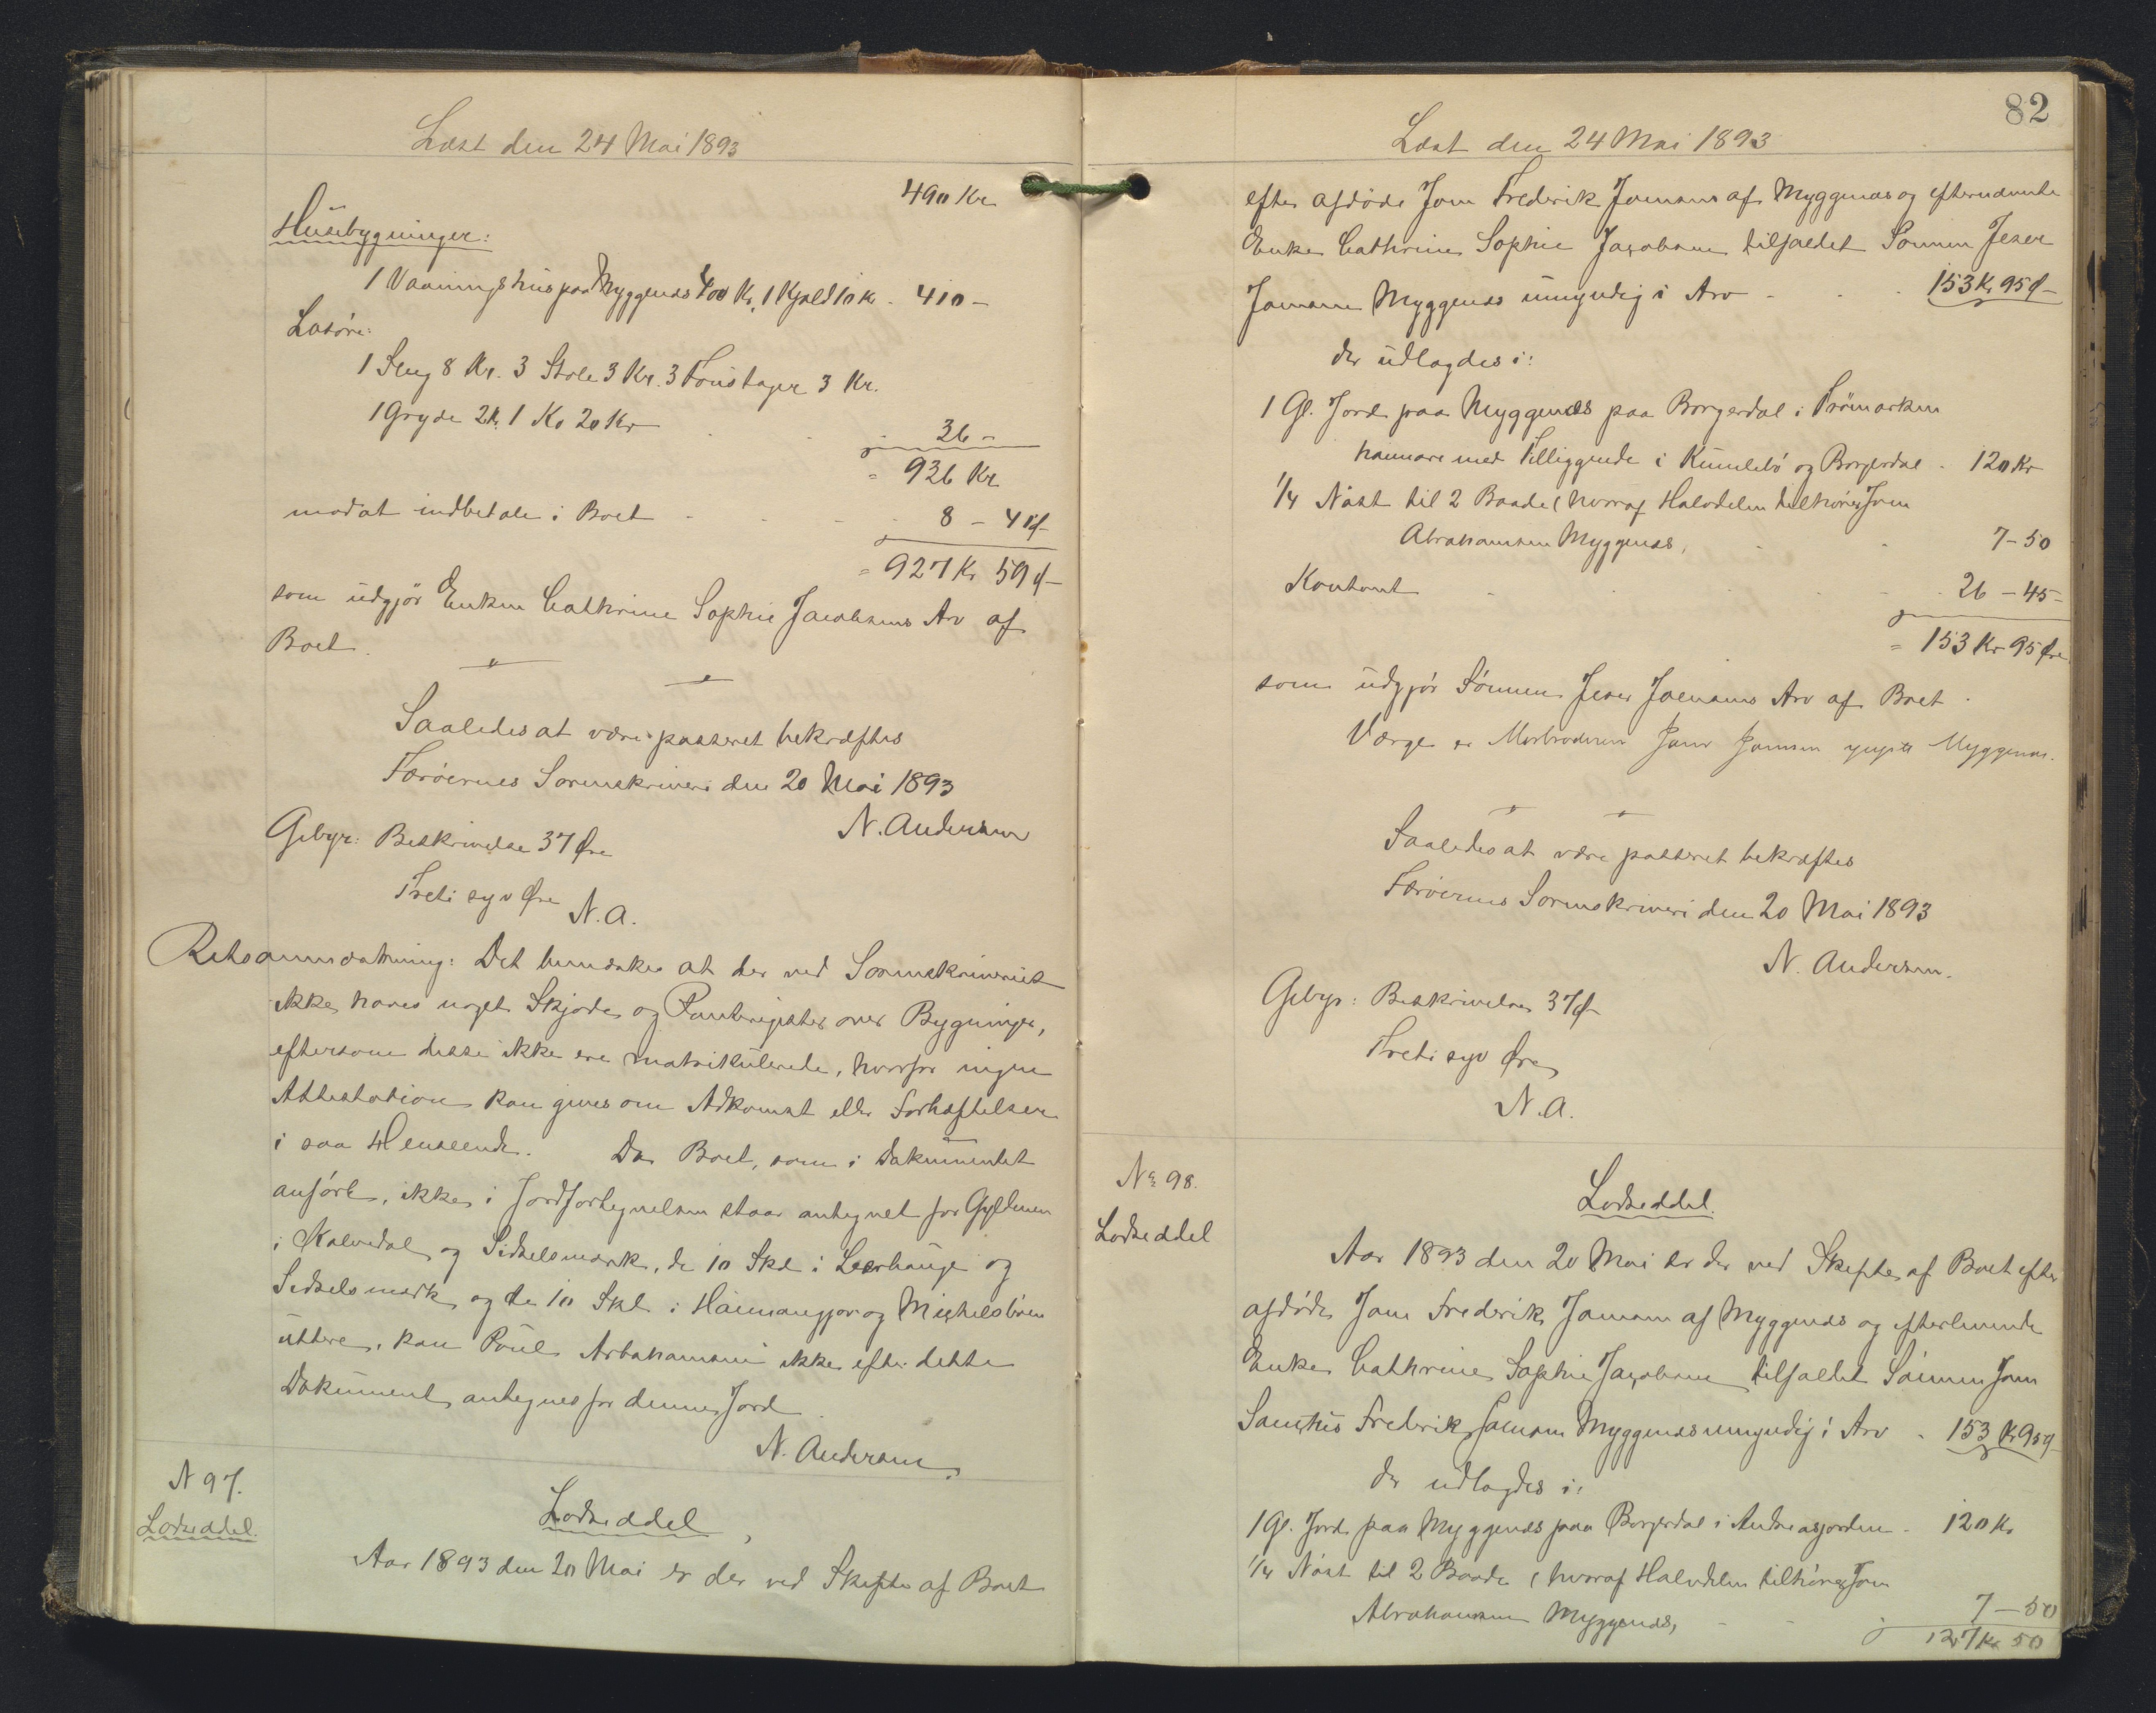 Læst den 24 Mai 1893
490 Kr
Husebygninger:
1 Vaaningshus paa Myggenæs 400 Kr, 1 Kjald 10 Kr - 410 -
Løsøre:
1 Seng 8 Kr. 3 Stole 3 Kr. 3 Foustager 3 Kr.
1 Gryde 2 Kr, 1 Ko 20 Kr - 36 -
= 936 Kr
modat indbetale i Boet - 8 - 41 Ø
= 927 Kr 59 Ø
som udgjør Enken Cathrine Sophie Jacobsens Arv af
Boet.
Saaledes at være passeret bekræftes
Færøernes Sorenskriveri den 20 Mai 1893
N. Andersen
Gebyr: Beskrivelse 37 Øre
Treti syv Øre
N.A.
Retsanmærkning: Det bemærkes at der ved Sorenskriveriet
ikke haves noget Skjøde og Panteregister over Bygninger,
eftersom disse ikke ere matrikulerede, hvorfor ingen
Attestation kan gives om Adkomst eller Forhæftelser
i saa Henseende. Da Boet, som i Dokumentet
anført, ikke i Jordfortegnelsen staar antegnet for Gyldenen
i Kalvedal og Sidselsmærk, de 10 Skd i Leerhauge og
Sidselsmærk og de 10 Skd i Haimangjov og Michelsbøen
uttere, kan Poul Arbahamsen ikke efter dette
Dokument antegnes for denne Jord
N. Andersen.
N 97.
Lodseddel.
Lodseddel
Aar 1893 den 20 Mai er der ved Skifte af Boet
82
Læst den 24 Mai 1893
efter afdøde Joen Frederik Joensens af Myggenæs og efternævnte
Enke Cathrine Sophie Jacobsen tilfaldet Sønnen Jeser
Joensen Myggenæs umyndig i Arv - 153 Kr 95 Ø
der udlagdes i:
1 Gl. Jord paa Myggenæs paa Borgerdal i Trømarken
haimare med Tilliggende i Kumlebø og Borgerdal - 120 Kr
1/4 Nøst til 2 Baade (hvoraf Halvdelen tilhører Joen
Abrahamsen Myggenæs, 7 - 50
Kontant 26 - 45 -
= 153 Kr 95 Øre
som udgjør Sønnen Jeser Joensens Arv af Boet.
Værge er Morbroderen Joen Joensen yngste Myggenæs.
Saaledes at være passeret bekræftes
Færøernes Sorenskriveri den 20 Mai 1893
N. Andersen.
Gebyr: Beskrivelse 37 Ø
Treti syv Øre
N.A.
No 98.
Lodseddel
Lodseddel.
Aar 1893 den 20 Mai er der ved Skifte af Boet efter
afdøde Joen Frederik Joensen af Myggenæs og efterlevende
Enke Cathrine Sophie Jacobsen tilfaldet Sønnen Joen
Frederik Joensen Myggenæs umyndig i Arv - 153 Kr 95 Ø
der udlagdes i:
1 Gl. Jord paa Myggenæs paa Borgerdal i Andreasjorden - 120 Kr
1/4 Nøst til 2 Baade (hvoraf Halvdelen tilhører Joen
Abrahamsen Myggenæs, 7 - 50
127 Kr 50